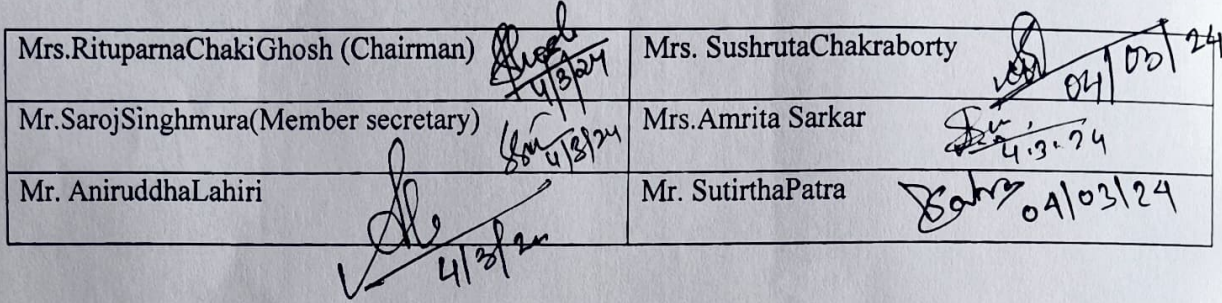 Mrs.RituparnaChakiGhosh (Chairman) 4/3/24 Mrs. SushrutaChakraborty 04/03/24
Mr.SarojSinghmura(Member secretary) 4/3/24 Mrs.Amrita Sarkar 4.3.24
Mr. AniruddhaLahiri 4/3/24 Mr. SutirthaPatra 04/03/24